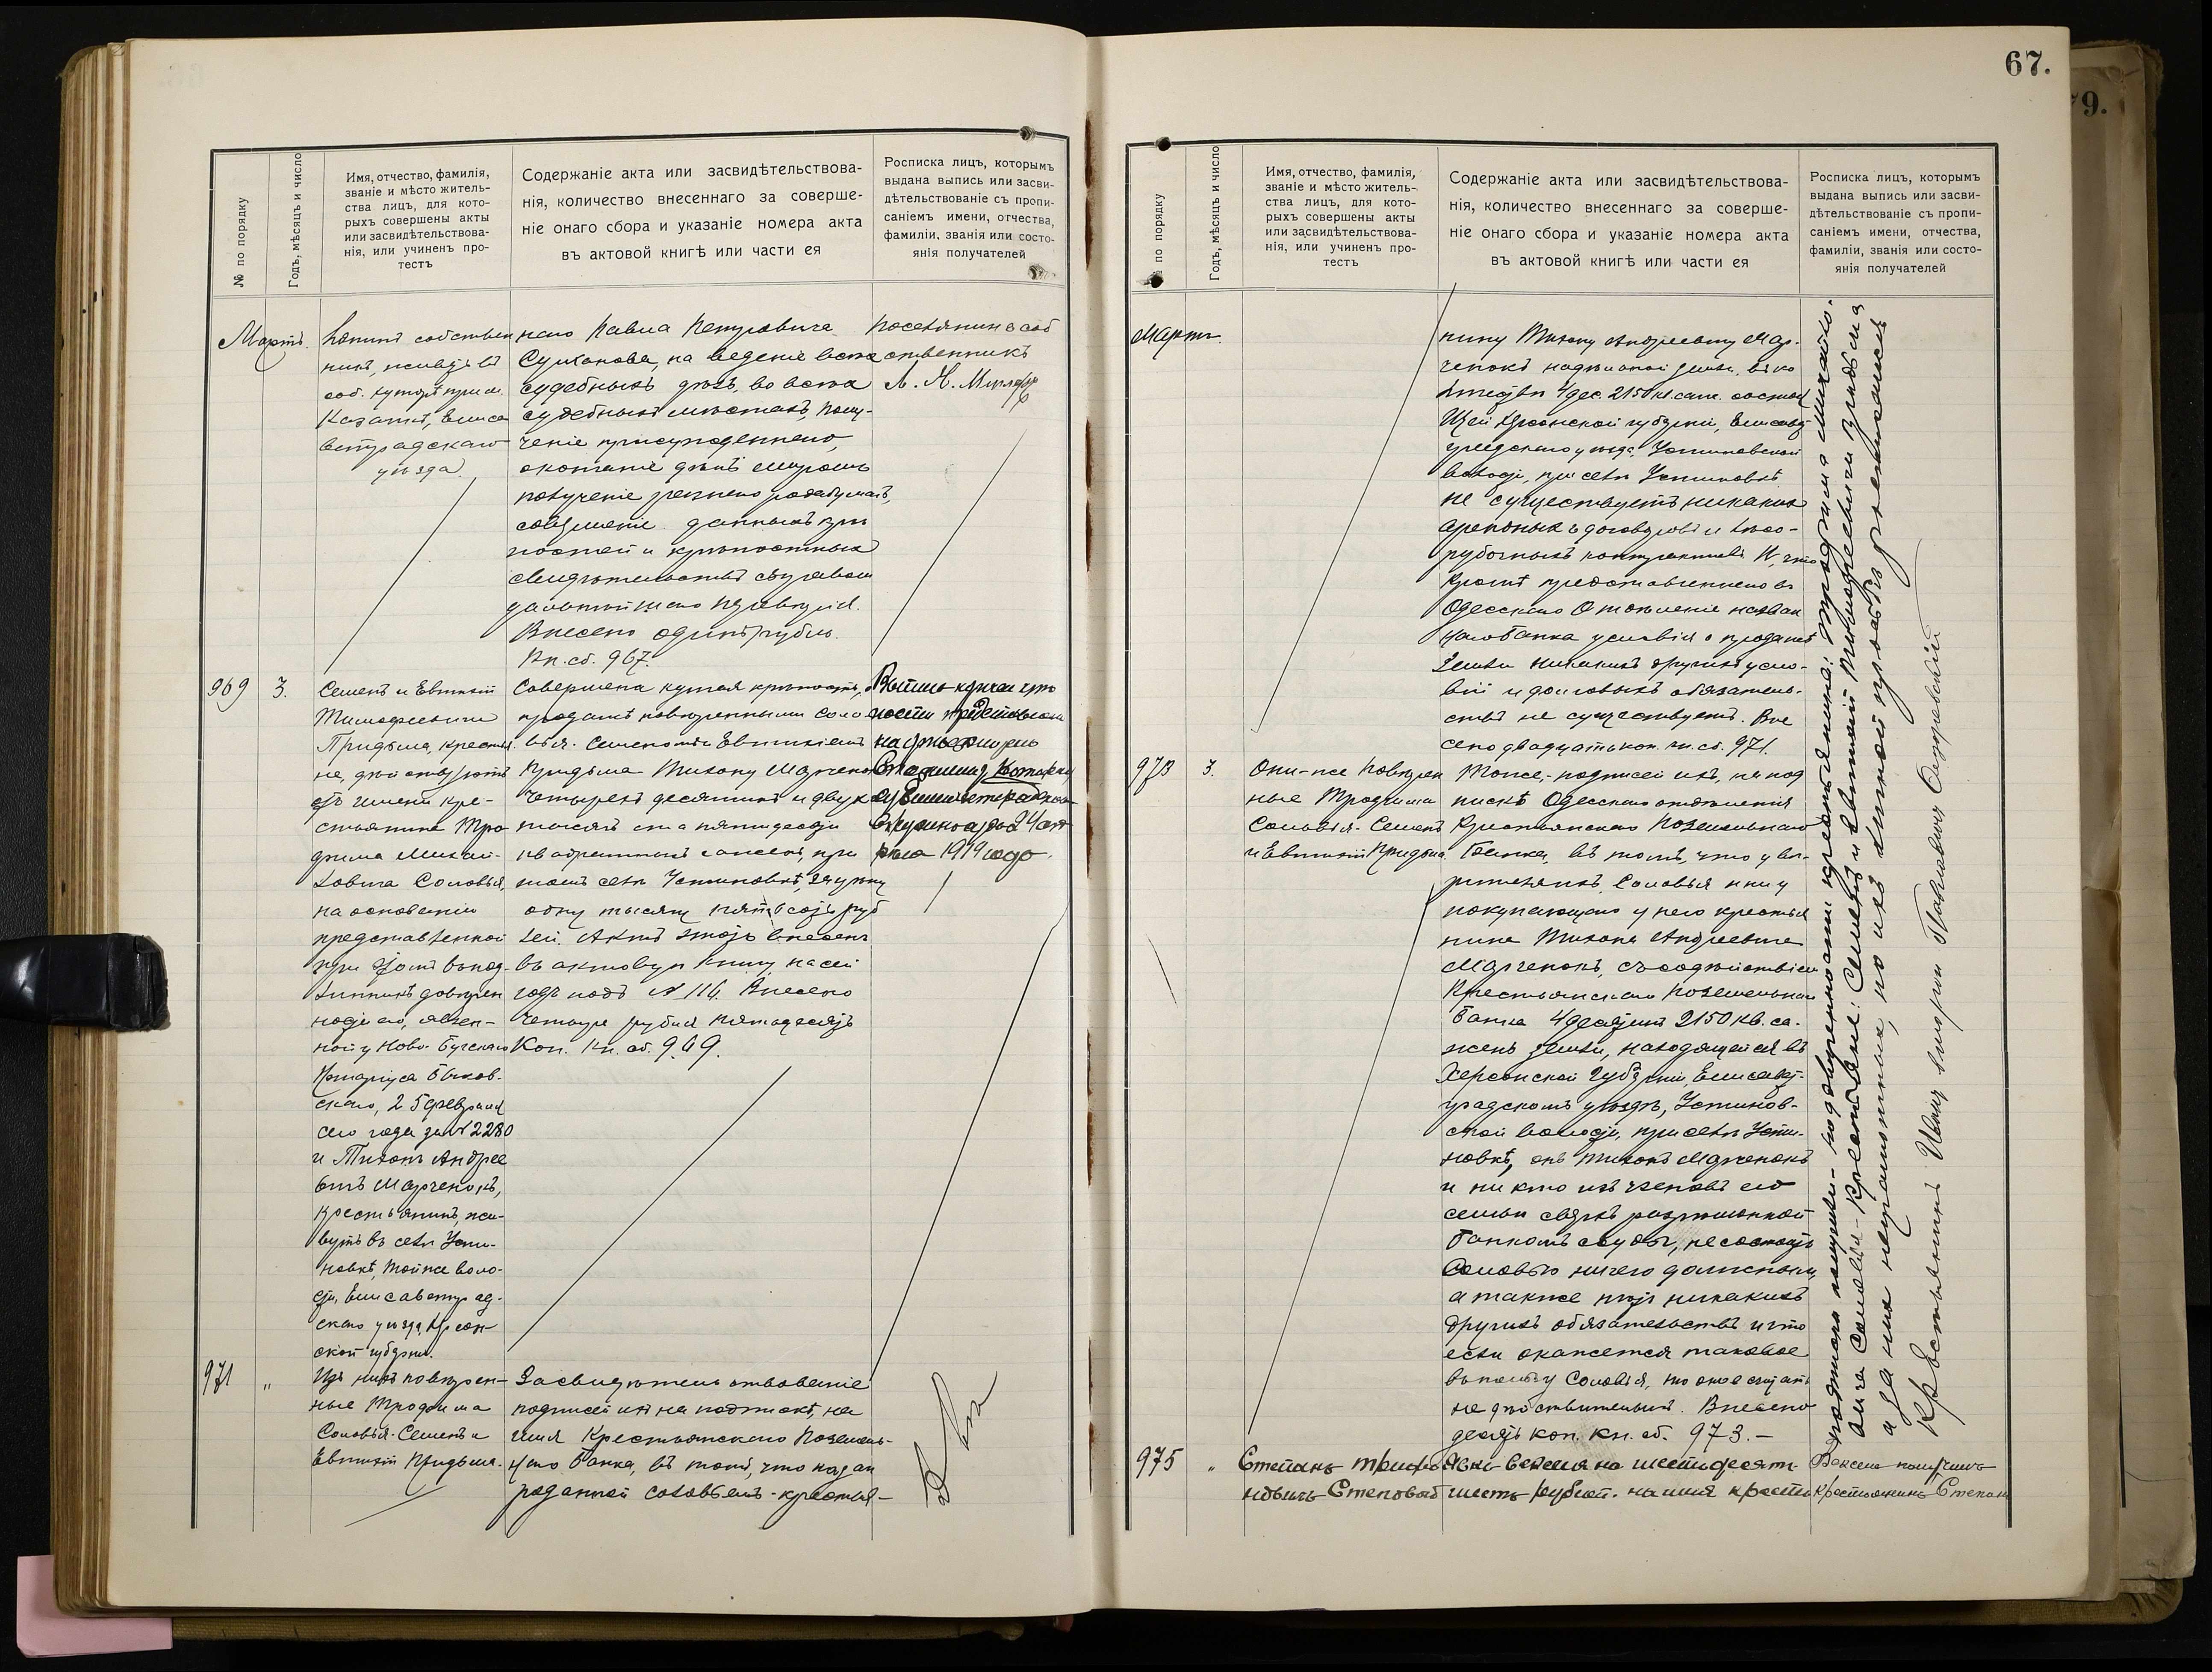 67.
79.
№ по порядку
Годъ, мѣсяцъ и число
Имя, отчество, фамилія,
званіе и мѣсто житель-
ства лицъ, для кото-
рыхъ совершены акты
или засвидѣтельствова-
нія, или учиненъ про-
тестъ
Содержаніе акта или засвидѣтельствова-
нія, количество внесеннаго за соверше-
ніе онаго сбора и указаніе номера акта
въ актовой книгѣ или части ея
Росписка лицъ, которымъ
выдана выпись или засви-
дѣтельствованіе съ пропи-
саніемъ имени, отчества,
фамиліи, званія или состо-
янія получателей
Мартъ.
собствен
никъ,
соб. хуторѣ при
уѣзда.
наго Павла Петровича
Султанова, на веденіе всѣхъ
судебныхъ дѣлъ, во всѣхъ
судебныхъ мѣстахъ, полу-
ченіе присужденнаго,
окончаніе дѣлъ миромъ
полученіе
совершеніе данныхъ крѣ
постей и крѣпостныхъ
свидѣтельствъ съ правом
Внесено одинъ рубль.
Кн. сб. 967.
Поселянинъ соб
ственникъ
969
3.
Семенъ и Евтихій
Тимофеевичи
Придыма, крестья
не, дѣйствуютъ
отъ имени кре-
стьянина Тро-
фима Михай-
ловича Соловья,
на основаніи
представленной
при этомъ въ под-
линникѣ довѣрен
ности его, явлен-
ной у Ново-Бугскаго
Нотаріуса Быков-
скаго, 25 февраля
сего года за № 2280
и Тихонъ Андрее
вичъ Марченокъ,
крестьянинъ, жи-
вутъ въ селѣ Усти-
новкѣ, той же воло-
сти, Елисаветград-
скаго уѣзда, Херсон-
ской губерніи.
Совершена купчая крѣпость, о
продажѣ повѣренными Соло
вья. Семеномъ и Евтихіемъ
Придыма Тихону Марченк
четырехъ десятинъ и двухъ
тысячъ ста пятидесяти
квадратныхъ саженъ, при
томъ селѣ Устиновкѣ, за цѣну
одну тысячу пятьсотъ руб
лей. Актъ этотъ внесенъ
въ актовую книгу на сей
годъ подъ № 116. Внесено
четыре рубля пятьдесятъ
Коп. Кн. сб. 969.
Выпись купчей крѣ
пости представлена
Старшему Нотаріу
су Елисаветградскаго
Окружного Суда 4 мар
та 1914 года.
971
"
Изъ нихъ повѣрен-
ные Трофима
Соловья-Семенъ и
Евтихій Придыма.
Засвидѣтельствованіе
подписей ихъ на подпискѣ, на
имя Крестьянскаго Поземель-
наго Банка, въ томъ, что на зап
роданной Соловьемъ-крестья-
№ по порядку
Годъ, мѣсяцъ и число
Имя, отчество, фамилія,
званіе и мѣсто житель-
ства лицъ, для кото-
рыхъ совершены акты
или засвидѣтельствова-
нія, или учиненъ про-
тестъ
Содержаніе акта или засвидѣтельствова-
нія, количество внесеннаго за соверше-
ніе онаго сбора и указаніе номера акта
въ актовой книгѣ или части ея
Росписка лицъ, которымъ
выдана выпись или засви-
дѣтельствованіе съ пропи-
саніемъ имени, отчества,
фамиліи, званія или состо-
янія получателей
Мартъ.
нину Тихону Андреевичу Мар-
ченокъ надѣльной земли, въ ко
личествѣ 4 дес. 2150 кв. саж. состоя
щей Херсонской губерніи, Елисавет
градскаго уѣзда, Устиновской
волости, при селѣ Устиновкѣ
не существуетъ никакихъ
арендныхъ договоровъ и лѣсо-
рубочныхъ контрактовъ и, что
кромѣ представленнаго въ
Одесское Отдѣленіе назван
наго Банка условія о продажѣ
земли никакихъ другихъ усло-
вій и долговыхъ обязатель-
ствъ не существуетъ. Вне
сено двадцать коп. кн. сб. 971.
973
3.
Они-же повѣрен
ные Трофима
Соловья-Семенъ
и Евтихій Придыма.
Тоже,-подписей ихъ, на под
пискѣ Одесскаго отдѣленія
Крестьянскаго Поземельнаго
Банка, въ томъ, что у вѣ-
рителя ихъ, Соловья ни у
покупающаго у него крестья
нина Тихона Андреевича
Марченокъ, съ содѣйствіем
Крестьянскаго Поземельнаго
Банка 4 десятин 2150 кв. са-
жень земли, находящейся въ
Херсонской губерніи, Елисавет-
градскомъ уѣздѣ, Устинов-
ской волости, при селѣ Усти-
новкѣ, онъ Тихонъ Марченокъ
и никто изъ членовъ его
семьи сверхъ разрѣшенной
банкомъ ссуды, не состоятъ
Соловью ничего должными,
а также нѣтъ никакихъ
другихъ обязательствъ и что
если окажется таковое
въ пользу Соловья, то оное считать
недѣйствительнымъ. Внесено
десять коп. кн. сб. 973.-
подписки получили-по довѣренности крестьянина: Трофима Михайло-
вича Соловья-Крестьяне: Семенъ и Евтихій Тимофеевичи Придыма,
а за нихъ неграмотныхъ, по ихъ личной просьбѣ росписался
Крестьянинъ Павловичъ
975
"
Степанъ
Степовый
Явка векселя на шестьдесятъ
шесть рублей. на имя кресть
Вексель получилъ
крестьянинъ Степан